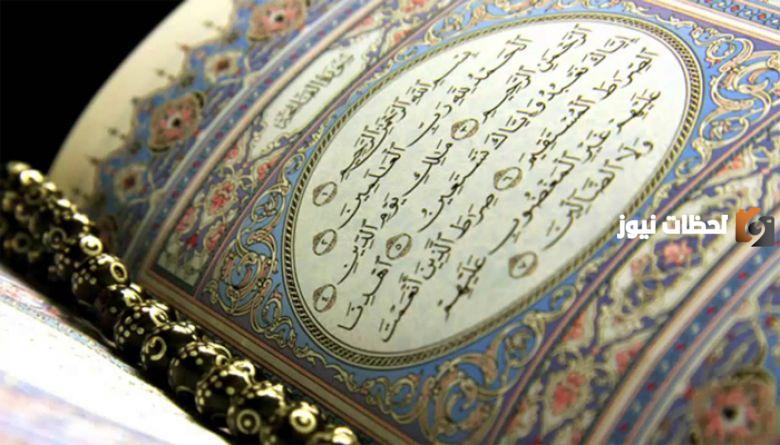 سورة الفاتحة
بِسْمِ اللَّهِ الرَّحْمَٰنِ الرَّحِيمِ ١
الْحَمْدُ لِلَّهِ رَبِّ الْعَالَمِينَ ٢
الرَّحْمَٰنِ الرَّحِيمِ ٣ مَالِكِ يَوْمِ الدِّينِ ٤
إِيَّاكَ نَعْبُدُ وَإِيَّاكَ نَسْتَعِينُ ٥ اهْدِنَا
الصِّرَاطَ الْمُسْتَقِيمَ ٦ صِرَاطَ الَّذِينَ أَنْعَمْتَ
عَلَيْهِمْ غَيْرِ الْمَغْضُوبِ عَلَيْهِمْ
وَلَا الضَّالِّينَ ٧
لحظات نيوز